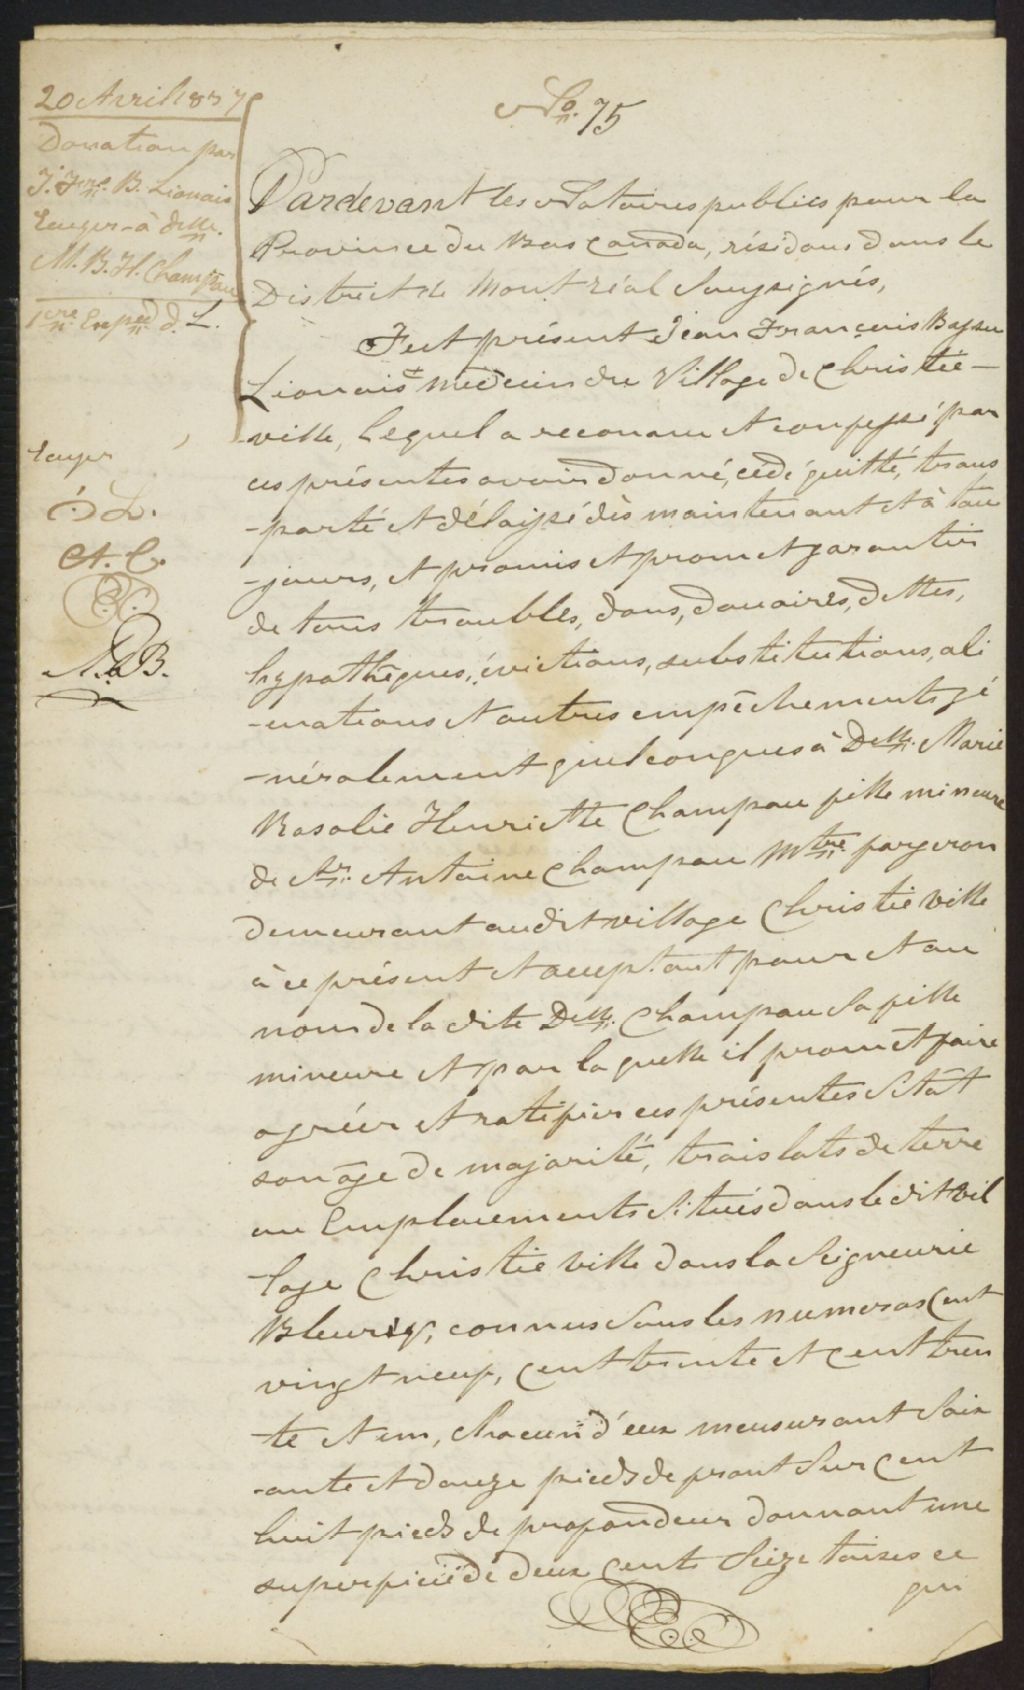 20 Avril 1837
Donation par
J. Frs. B. Lionais
Ecuyer à Delle.
M. R. H. Champau
1ere. Exped. d. L.
No. 75
Pardevant les Notaires publics pour la
Province du Bas Canada, résidans dans le
District de Montréal Soussignés,
Fut présent Jean François
Lionais médecin du Village de Christie-
ville, lequel a reconnu et confessé par
ces présentes avoir donné, cédé quitté, trans
-porté et délaissé dès maintenant et à tou
-jours, et promis et promet garantir
de tous troubles, dons, douaires, dettes,
hypothèques, évictions, substitutions, ali
-enations et autres empêchements gé
-néralement quelconques à Delle. Marie
Rosalie Henriette Champau fille mineure
de Sr. Antoine Champau Mtre. forgeron
demeurant audit village Christieville
à ce présent et acceptant pour et au
nom de la dite Delle. Champau Sa fille
mineure et par laquelle il promet faire
agréer et ratifier ces présentes Sitôt
son âge de majorité, trois lots de terre
ou Emplacements Situés dans le dit vil
-lage Christieville dans la Seigneurie
Bleury, connus Sous les numeros Cent
vingt neuf, Cent trente et Cent tren
-te et un, chacun d'eux mesurant Soix
-ante et douze pieds de front Sur Cent
huit pieds de profondeur donnant une
superficie de deux Cent Seize toises ce
qui
Ecuyer
L.
A. C.
P. B.